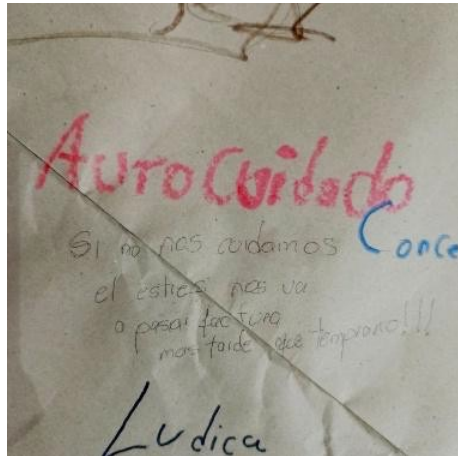 AutoCuidado
Si no nos cuidamos
Conce
el estres nos va
a pasar factura
mas tarde que temprano!!!
Ludica